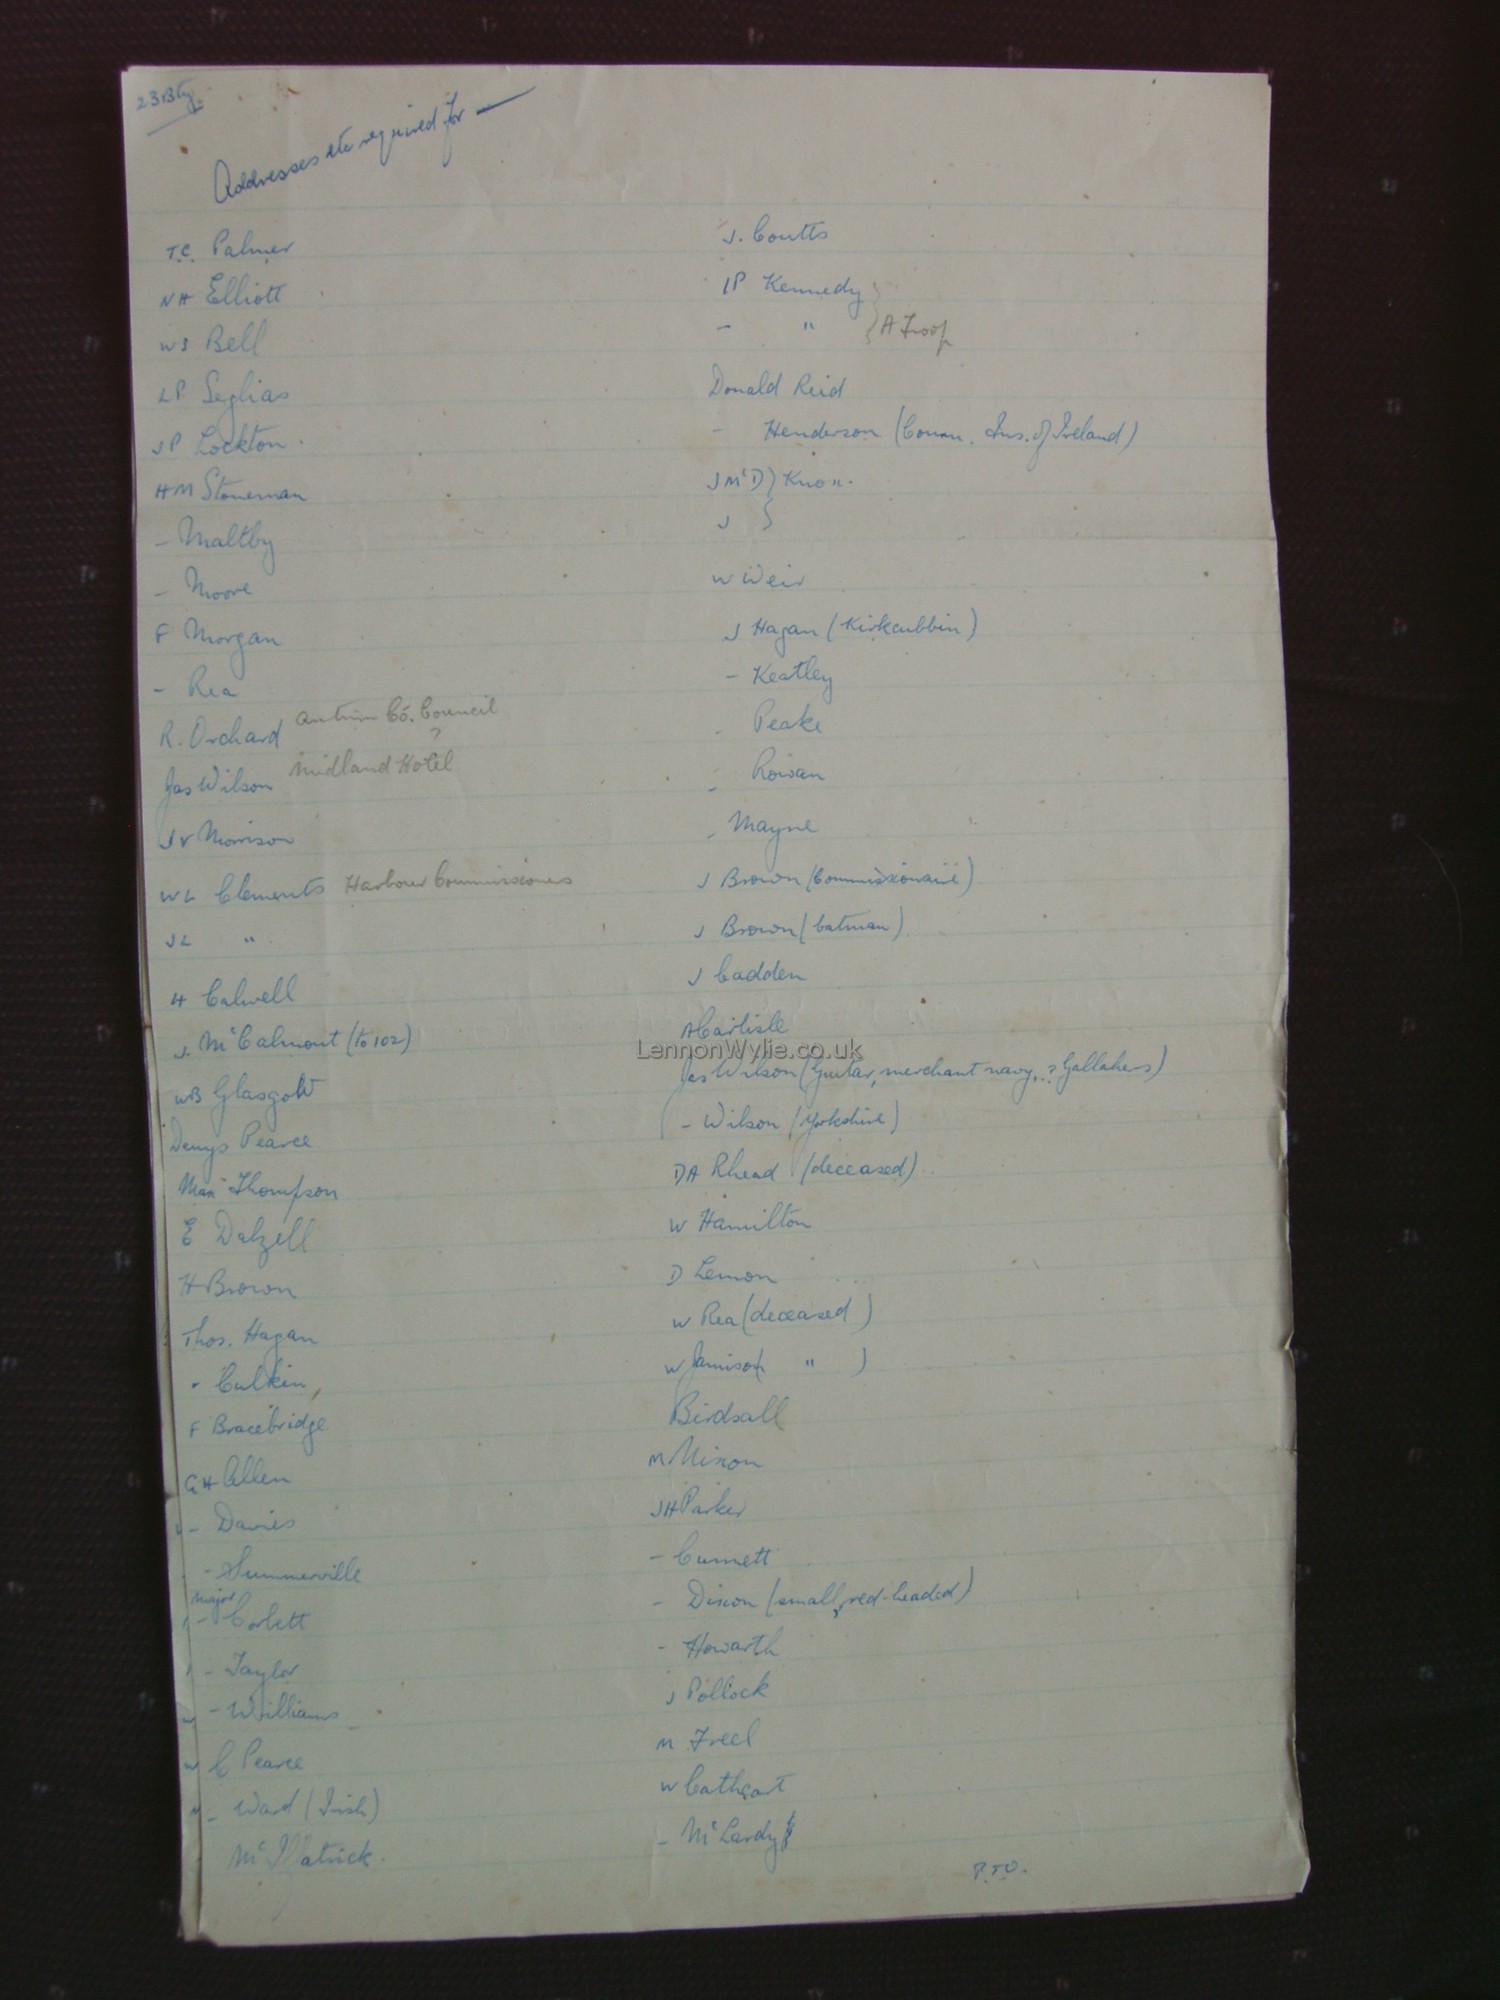 23 Bty.
Addresses etc required for —
T.C. Palmer
NH Elliott
WS Bell
LP Seglias
JP Lockton.
HM Stoneman
- Maltby
- Moore
F Morgan
- Rea
R. Orchard Antrim Co. Council
?
Jas Wilson Midland Hotel
JV Morrison
WL Clements Harbour Commissioners
JL "
H Calwell
J. McCalmont (to 102)
WB Glasgow
Denys Pearce
Max Thompson
E Dalzell
H Brown
Thos. Hagan
- Culkin
F Bracebridge
GH Allen
- Davies
- Summerville
Major
- Corlett
- Taylor
- Williams
C Pearce
- Ward (Irish)
J. Coutts
JP Kennedy
- " } A Troop
Donald Reid
- Henderson (Comm. Ins. of Ireland)
J McD } Knox.
J }
W Weir
J Hagan (Kirkcubbin)
- Keatley
- Peake
- Rowan
- Mayne
J Brown (Commissionaire)
J Brown (batman)
J Cadden
A Carlisle
LennonWylie.co.uk
Jas Wilson (Guitar, merchant navy, ? Gallahers)
- Wilson (Yorkshire)
DA Rhead (deceased)
W Hamilton
D Lemon
W Rea (deceased)
W Jamison " )
Birdsall
M Nixon
JH Parker
- Curnett
- Dixon (small, red-headed)
- Howarth
J Pollock
M Freel
W Cathcart
- McLardy
P.T.O.